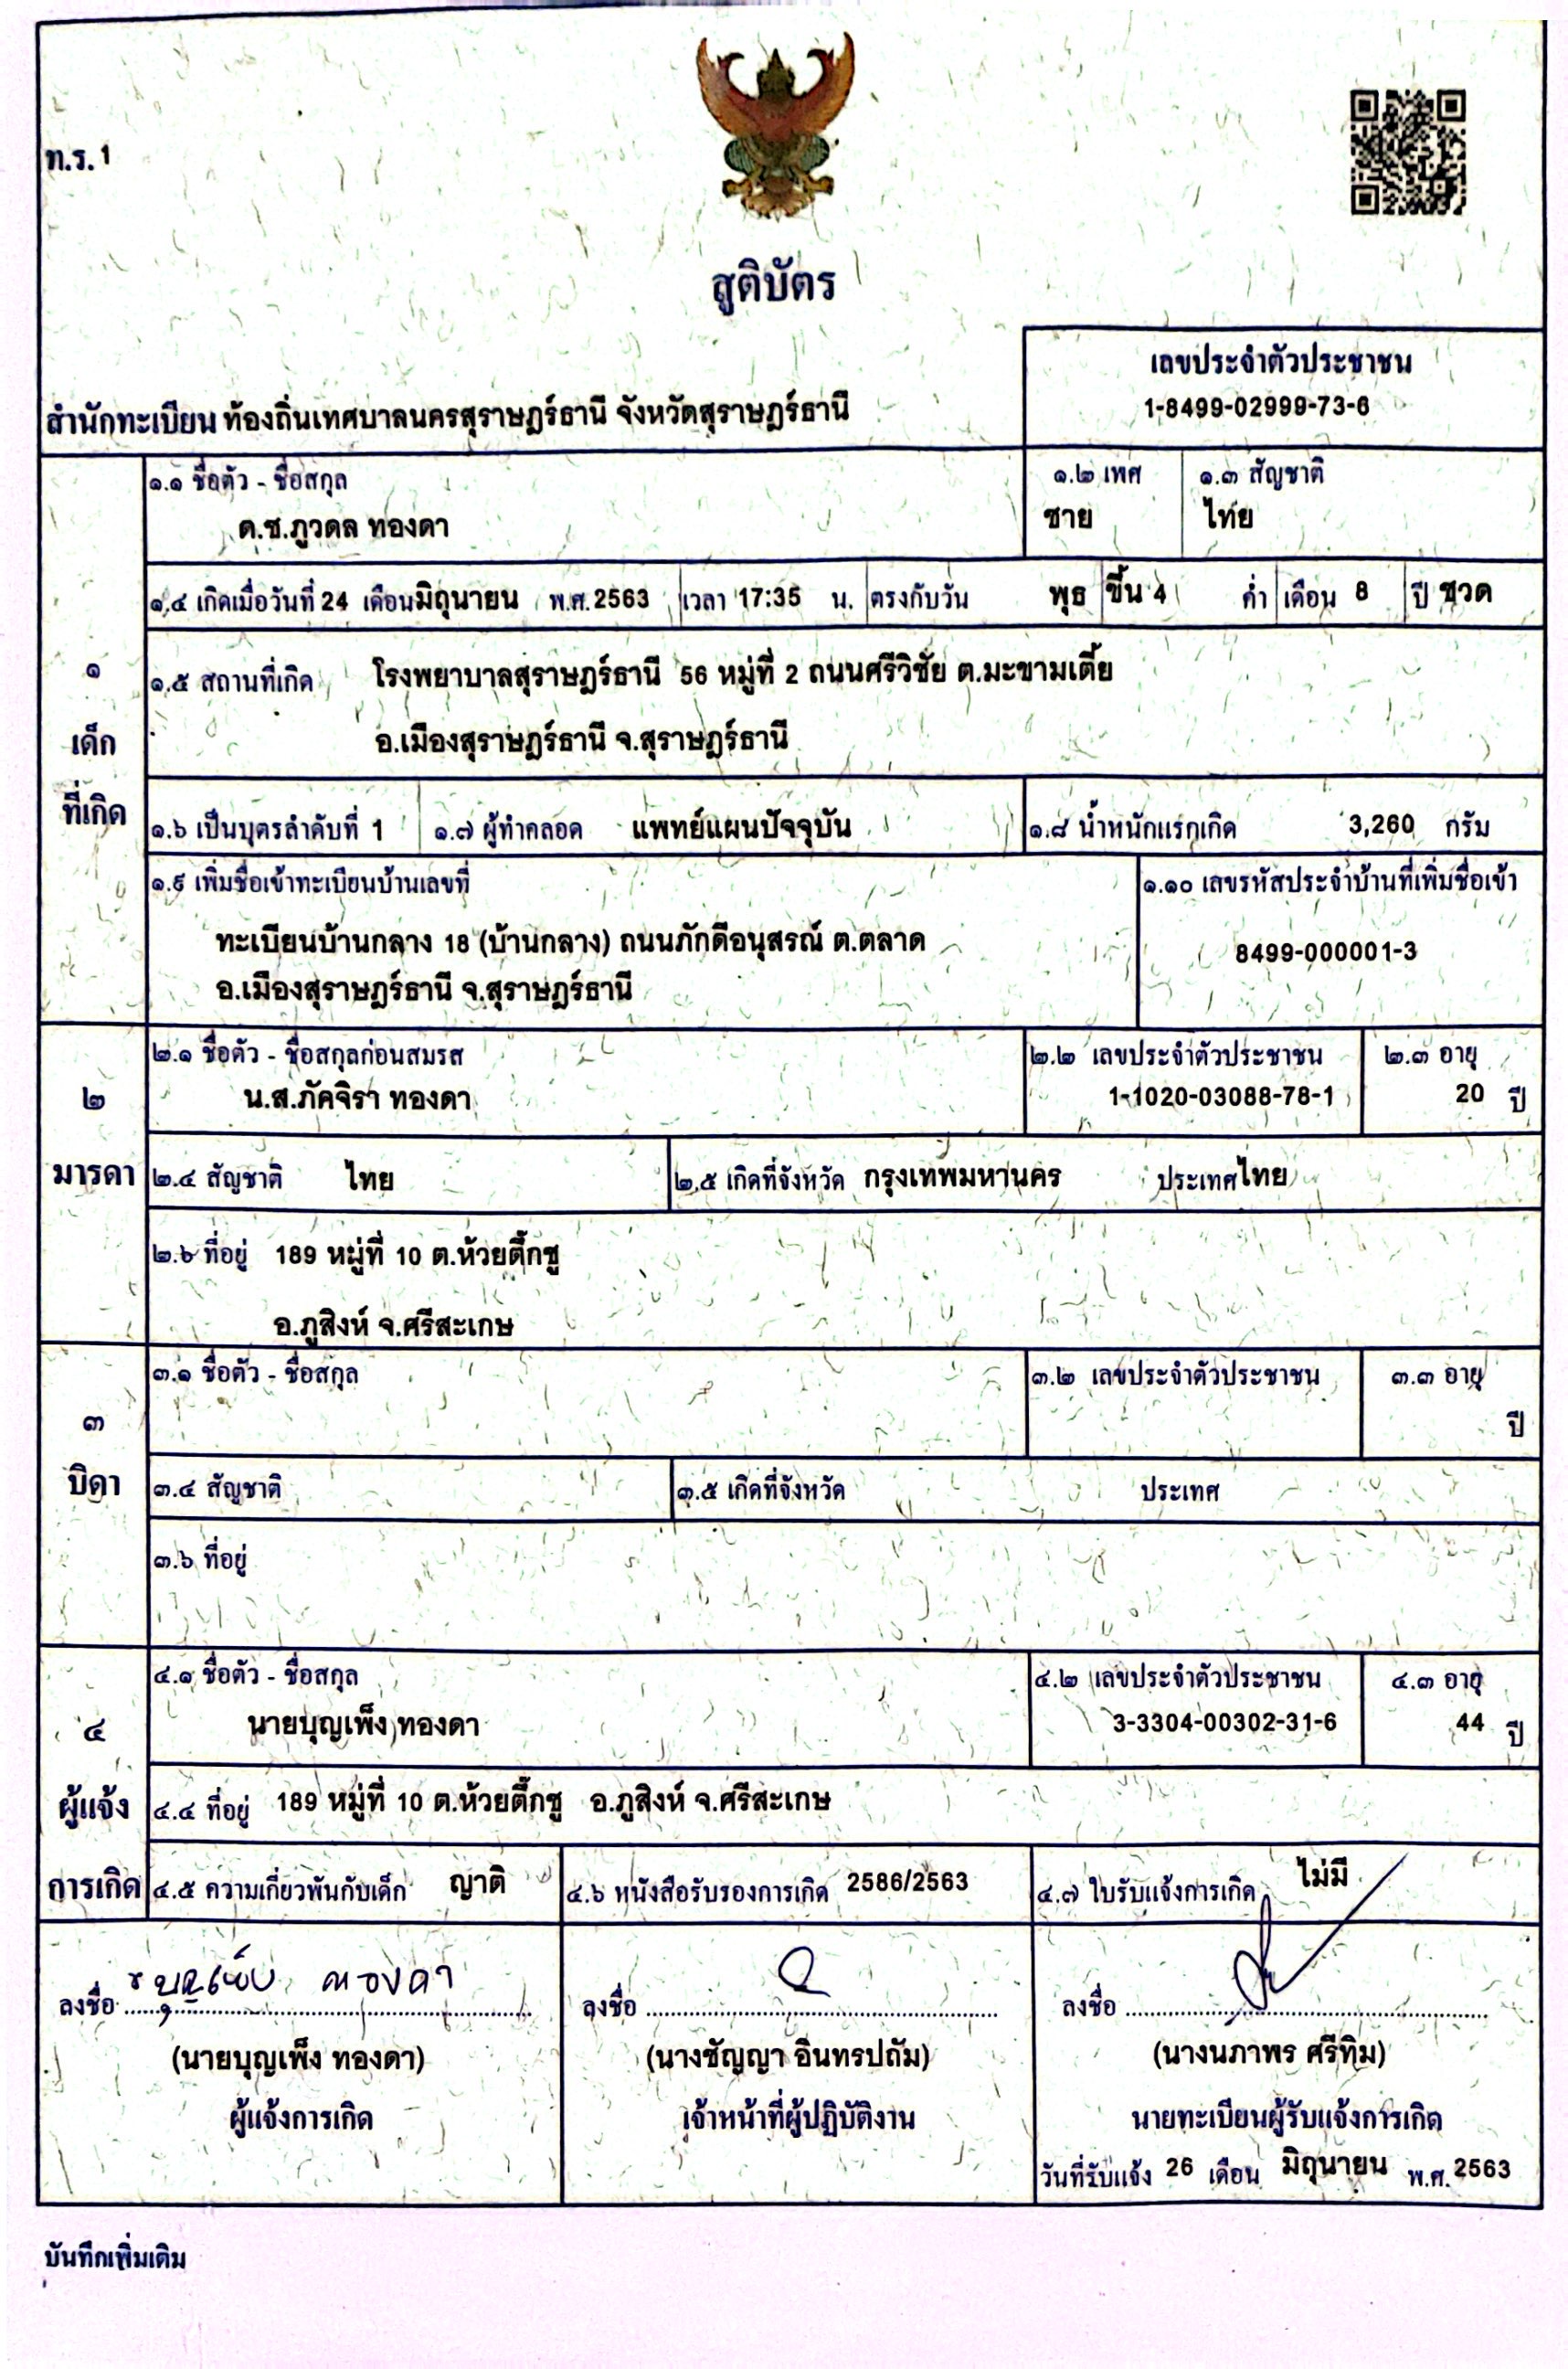 ท.ร. 1
สูติบัตร
เลขประจำตัวประชาชน
1-8499-02999-73-6
สำนักทะเบียน ท้องถิ่นเทศบาลนครสุราษฎร์ธานี จังหวัดสุราษฎร์ธานี
๑.๑ ชื่อตัว - ชื่อสกุล
ด.ช.ภูวดล ทองดา
๑.๒ เพศ
ชาย
๑.๓ สัญชาติ
ไทย
๑.๔ เกิดเมื่อวันที่ 24 เดือน มิถุนายน พ.ศ. 2563 เวลา 17:35 น. ตรงกับวัน พุธ ขึ้น 4 ค่ำ เดือน 8 ปี ชวด
๑
เด็ก
ที่เกิด
๑.๕ สถานที่เกิด โรงพยาบาลสุราษฎร์ธานี 56 หมู่ที่ 2 ถนนศรีวิชัย ต.มะขามเตี้ย
อ.เมืองสุราษฎร์ธานี จ.สุราษฎร์ธานี
๑.๖ เป็นบุตรลำดับที่ 1 ๑.๗ ผู้ทำคลอด แพทย์แผนปัจจุบัน ๑.๘ น้ำหนักแรกเกิด 3,260 กรัม
๑.๙ เพิ่มชื่อเข้าทะเบียนบ้านเลขที่
ทะเบียนบ้านกลาง 18 (บ้านกลาง) ถนนภักดีอนุสรณ์ ต.ตลาด
อ.เมืองสุราษฎร์ธานี จ.สุราษฎร์ธานี
๑.๑๐ เลขรหัสประจำบ้านที่เพิ่มชื่อเข้า
8499-000001-3
๒
มารดา
๒.๑ ชื่อตัว - ชื่อสกุลก่อนสมรส
น.ส.ภัคจิรา ทองดา
๒.๒ เลขประจำตัวประชาชน
1-1020-03088-78-1
๒.๓ อายุ
20 ปี
๒.๔ สัญชาติ ไทย ๒.๕ เกิดที่จังหวัด กรุงเทพมหานคร ประเทศ ไทย
๒.๖ ที่อยู่ 189 หมู่ที่ 10 ต.ห้วยตึ๊กชู
อ.ภูสิงห์ จ.ศรีสะเกษ
๓
บิดา
๓.๑ ชื่อตัว - ชื่อสกุล
๓.๒ เลขประจำตัวประชาชน
๓.๓ อายุ
ปี
๓.๔ สัญชาติ ๓.๕ เกิดที่จังหวัด ประเทศ
๓.๖ ที่อยู่
๔
ผู้แจ้ง
การเกิด
๔.๑ ชื่อตัว - ชื่อสกุล
นายบุญเพ็ง ทองดา
๔.๒ เลขประจำตัวประชาชน
3-3304-00302-31-6
๔.๓ อายุ
44 ปี
๔.๔ ที่อยู่ 189 หมู่ที่ 10 ต.ห้วยตึ๊กชู อ.ภูสิงห์ จ.ศรีสะเกษ
๔.๕ ความเกี่ยวพันกับเด็ก ญาติ ๔.๖ หนังสือรับรองการเกิด 2586/2563 ๔.๗ ใบรับแจ้งการเกิด ไม่มี
ลงชื่อ บุญเพ็ง ทองดา
(นายบุญเพ็ง ทองดา)
ผู้แจ้งการเกิด
ลงชื่อ
(นางชัญญา อินทรปถัม)
เจ้าหน้าที่ผู้ปฏิบัติงาน
ลงชื่อ
(นางนภาพร ศรีทิม)
นายทะเบียนผู้รับแจ้งการเกิด
วันที่รับแจ้ง 26 เดือน มิถุนายน พ.ศ. 2563
บันทึกเพิ่มเติม